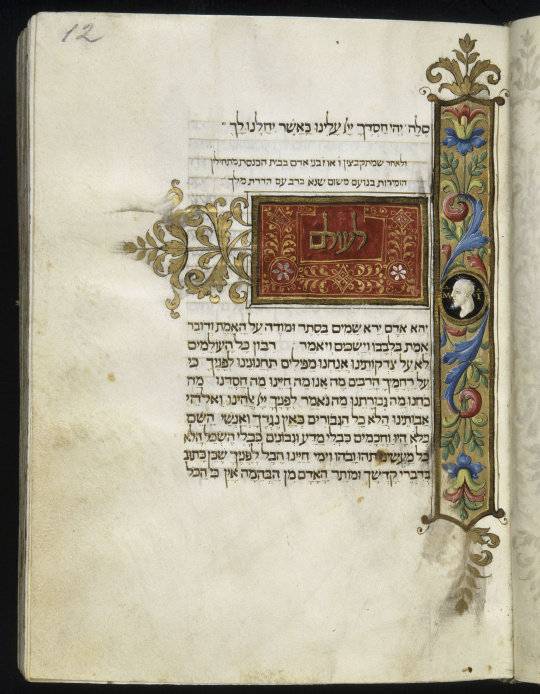 12
סלה יהי חסדך ייי עלינו כאשר יחלנו לך
ולאחר שמתקבצין בני אדם בבית הכנסת מתחילין
הזמירות בנועם משום שנא כרב עם הדרת מלך
לעולם
יהא אדם ירא שמים בסתר ומודה על האמת ודובר
אמת בלבבו וישכים ויאמר רבון כל העולמים
לא על צדקותינו אנחנו מפילים תחנונינו לפניך כי
על רחמיך הרבים מה אנו מה חיינו מה חסדנו מה
כחנו מה גבורתנו מה נאמר לפניך ייי אלהינו ואלהי
אבותינו הלא כל הגבורים כאין נגדך ואנשי השם
כלא היו וחכמים כבלי מדע ונבונים כבלי השכל הלא
כל מעשינו תהו ובהו וימי חיינו הבל לפניך שכן כתוב
בדברי קדשך ומותר האדם מן הבהמה אין כי הכל
M I